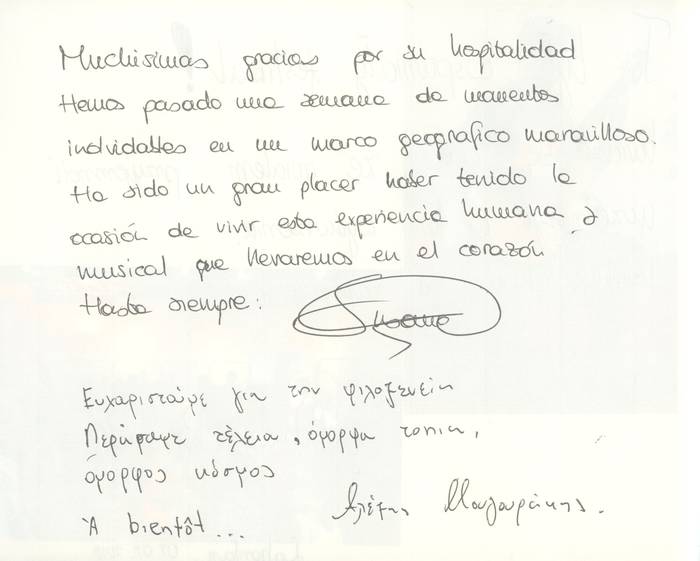 Muchisimas gracias por su hospitalidad
Hemos pasado una semana de momentos
inolvidables en un marco geografico maravilloso.
Ha sido un gran placer haber tenido la
ocasión de vivir esta experiencia humana y
musical que llevaremos en el corazón
Hasta siempre:
Ευχαριστούμε για την φιλοξενεία
Περάσαμε τέλεια, όμορφα τοπία,
όμορφος κόσμος
À bientôt...
Αλέξης